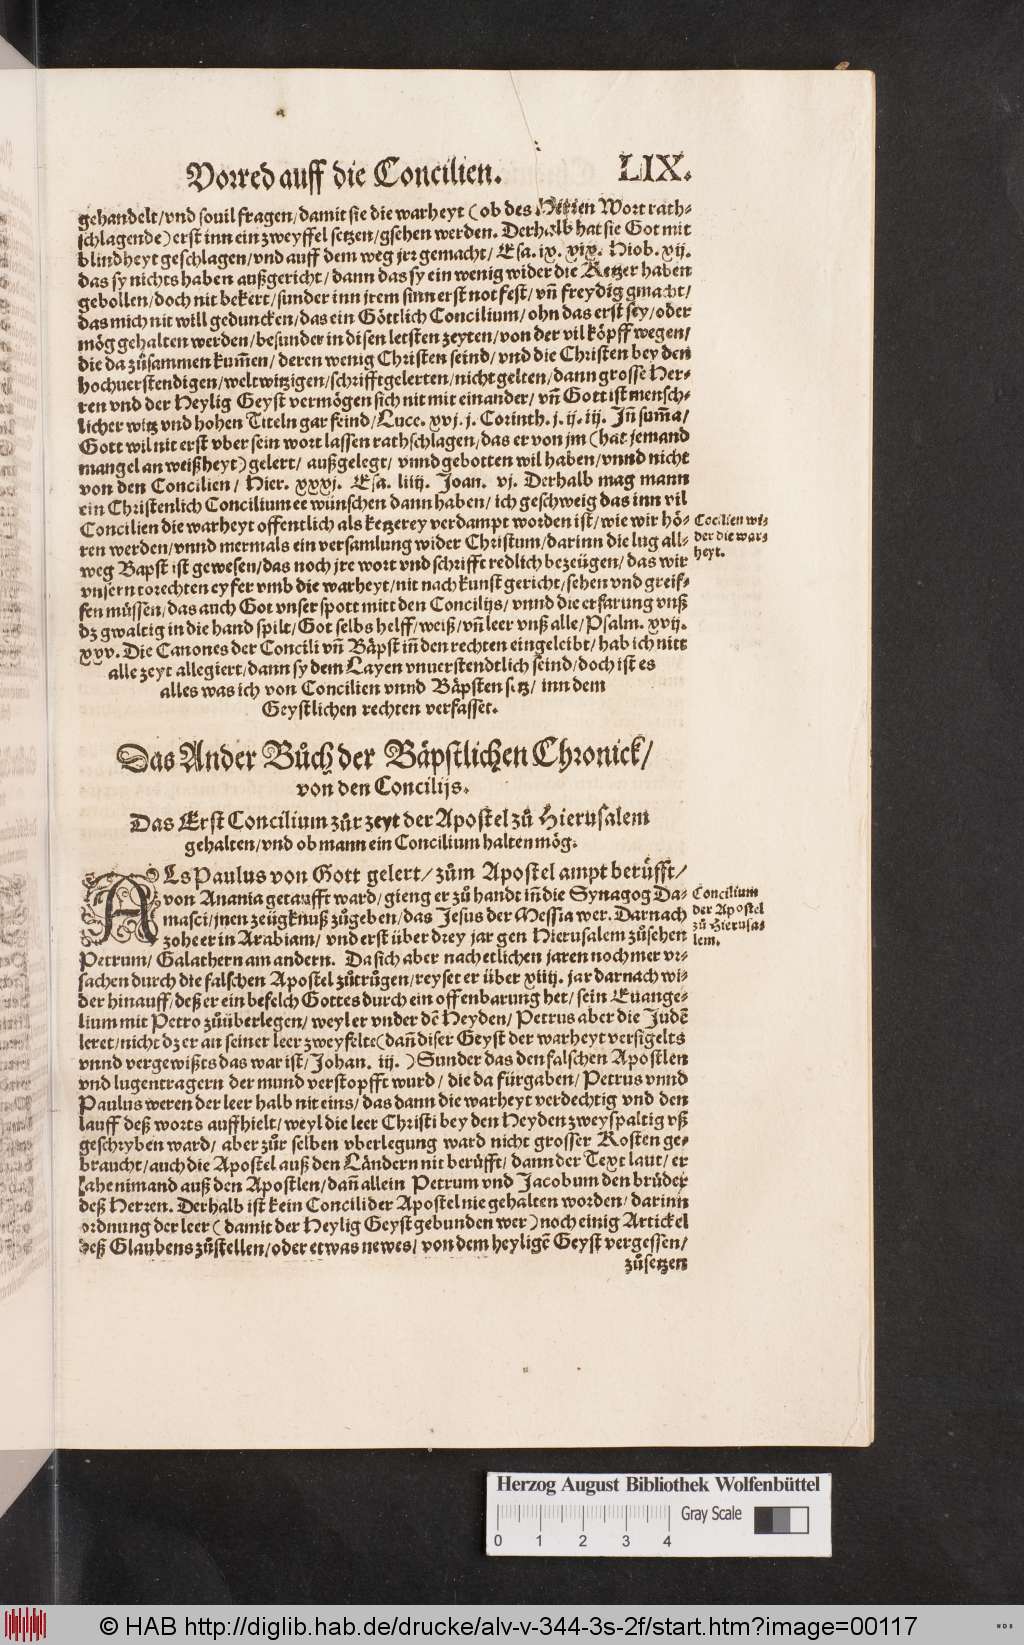 Vorred auff die Concilien. LIX.
gehandelt/vnd souil fragen/damit sie die warheyt (ob des Herren Wort rath-
schlagende) erst inn ein zweyffel setzen/gsehen werden. Derhalb hat sie Got mit
blindheyt geschlagen/vnd auff dem weg jrr gemacht/ Esa. ix. xix. Hiob. xij.
das sy nichts haben außgericht/dann das sy ein wenig wider die Ketzer haben
gebollen/doch nit bekert/sunder inn jrem sinn erst notfest/vñ freydig gmacht/
das mich nit will geduncken/das ein Göttlich Concilium/ohn das erst sey/oder
mög gehalten werden/besunder in disen letsten zeyten/von der vil köpff wegen/
die da zůsammen kum̃en/deren wenig Christen seind/vnd die Christen bey den
hochuerstendigen/weltwitzigen/schrifftgelerten/nicht gelten/dann grosse Her-
ren vnd der Heylig Geyst vermögen sich nit mit einander/vñ Gott ist mensch-
licher witz vnd hohen Titeln gar feind/Luce. xvj. j. Corinth. j. ij. iij. Jñ sum̃a/
Gott wil nit erst vber sein wort lassen rathschlagen/das er von jm (hat jemand
mangel an weißheyt) gelert/ außgelegt/ vnnd gebotten wil haben/vnnd nicht
von den Concilien/ Hier. xxxj. Esa. liiij. Joan. vj. Derhalb mag mann
ein Christenlich Concilium ee wünschen dann haben/ich geschweig das inn vil
Concilien die warheyt offentlich als ketzerey verdampt worden ist/wie wir hö-
ren werden/vnnd mermals ein versamlung wider Christum/darinn die lug all-
weg Bapst ist gewesen/das noch jre wort vnd schrifft redlich bezeügen/das wir
vnsern torechten eyfer vmb die warheyt/nit nach kunst gericht/sehen vnd greif-
fen müssen/das auch Got vnser spott mitt den Concilijs/vnnd die erfarung vnß
dz gwaltig in die hand spilt/Got selbs helff/weiß/vñ leer vnß alle/Psalm. xvij.
xxv. Die Canones der Concili vñ Bäpst iñ den rechten eingeleibt/hab ich nitt
alle zeyt allegiert/dann sy dem Layen vnuerstendtlich seind/doch ist es
alles was ich von Concilien vnnd Bäpsten setz/ inn dem
Geystlichen rechten verfasset.
Cõcilien wi-
der die war-
heyt.
Das Ander Bůch der Bäpstlichen Chronick/
von den Concilijs.
Das Erst Concilium zůr zeyt der Apostel zů Hierusalem
gehalten/vnd ob mann ein Concilium halten mög.
ALs Paulus von Gott gelert/zům Apostel ampt berüfft/
von Anania getaufft ward/gieng er zů handt iñ die Synagog Da-
masci/jnen zeügknuß zůgeben/das Jesus der Messia wer. Darnach
zoheer in Arabiam/ vnd erst über drey jar gen Hierusalem zůsehen
Petrum/ Galathern am andern. Da sich aber nach etlichen jaren noch mer vr-
sachen durch die falschen Apostel zůtrůgen/reyset er über xiiij. jar darnach wi-
der hinauff/deß er ein befelch Gottes durch ein offenbarung het/sein Euange-
lium mit Petro zůüberlegen/weyl er vnder dẽ Heyden/Petrus aber die Judẽ
leret/nicht dz er an seiner leer zweyfelte (dañ diser Geyst der warheyt versigelts
vnnd vergewißts das war ist/Johan. iij.) Sunder das den falschen Apostlen
vnd lugentragern der mund verstopfft wurd/ die da fürgaben/Petrus vnnd
Paulus weren der leer halb nit eins/das dann die warheyt verdechtig vnd den
lauff deß worts auffhielt/weyl die leer Christi bey den Heyden zweyspaltig vß
geschryben ward/ aber zůr selben vberlegung ward nicht grosser Kosten ge-
braucht/auch die Apostel auß den Ländern nit berüfft/dann der Text laut/er
sahe nimand auß den Apostlen/dañ allein Petrum vnd Jacobum den brůder
deß Herren. Derhalb ist kein Concili der Apostel nie gehalten worden/darinn
ordnung der leer (damit der Heylig Geyst gebunden wer) noch einig Artickel
deß Glaubens zůstellen/oder etwas newes/von dem heyligẽ Geyst vergessen/
zůsetzen
Concilium
der Apostel
zů Hierusa-
lem.
Herzog August Bibliothek Wolfenbüttel
0 1 2 3 4
Gray Scale
© HAB http://diglib.hab.de/drucke/alv-v-344-3s-2f/start.htm?image=00117